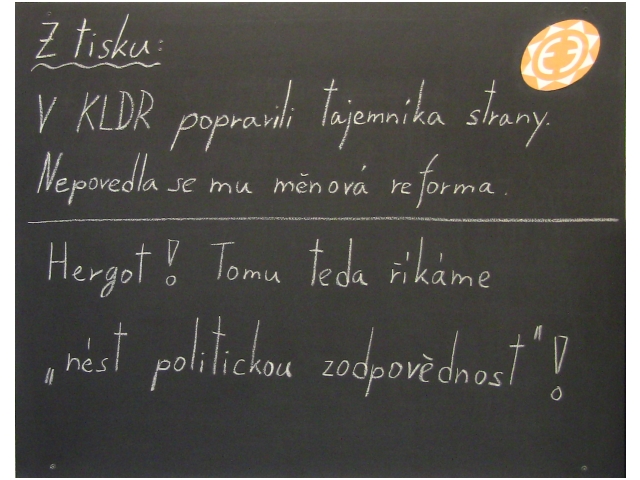 Z tisku:
V KLDR popravili tajemnika strany.
Nepovedla se mu měnová reforma.
Hergot! Tomu teda říkáme
„nést politickou zodpovědnost"!